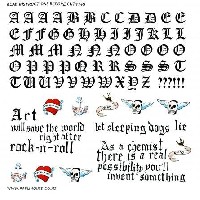 AAAABBCCDDEE
EEFFGGHHIIJKLL
MMMNNNNOOOOO
OPPQRRRSSSSTTT
TUUVVWWXYZ ???!!!
Art
will save the world
right after
rock-n-roll
let sleeping dogs lie
As a chemist
there is a real
possibility you'll
invent something